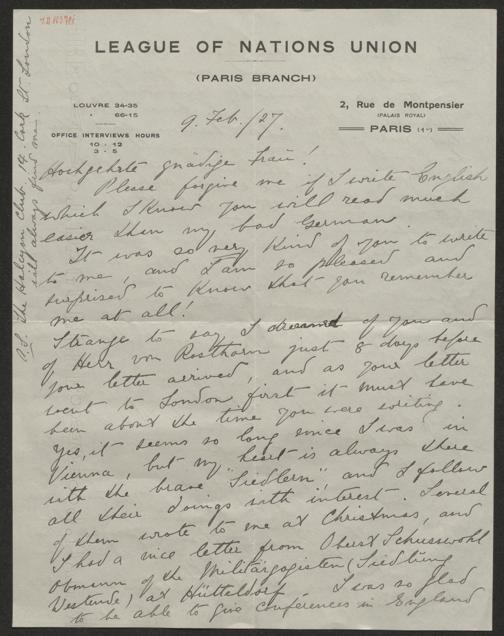 LEAGUE OF NATIONS UNION
(PARIS BRANCH)
LOUVRE 34-35
" 66-15
OFFICE INTERVIEWS HOURS
10 - 12
3 - 5
2, Rue de Montpensier
(PALAIS ROYAL)
PARIS (1er)
9. Feb./27.
Hochgeehrte gnädige Frau!
Please forgive me if I write English
which I know you will read much
easier than my bad German.
It was so very kind of you to write
to me, and I am so pleased and
surprised to know that you remember
me at all!
Strange to say I dreamed of you and
of Herr von Rosthorn just 8 days before
your letter arrived, and as your letter
went to London first it must have
been about the time you were writing.
Yes, it seems so long since I was in
Vienna, but my heart is always there
with the brave "Siedlern", and I follow
all their doings with interest. Several
of them wrote to me at Christmas, and
I had a nice letter from Oberst
Obmann of the (Siedlung
at Hütteldorf. I was so glad
to be able to give conferences in England
P.S. The Halcyon Club. 14. Cork St. London
will always find me.